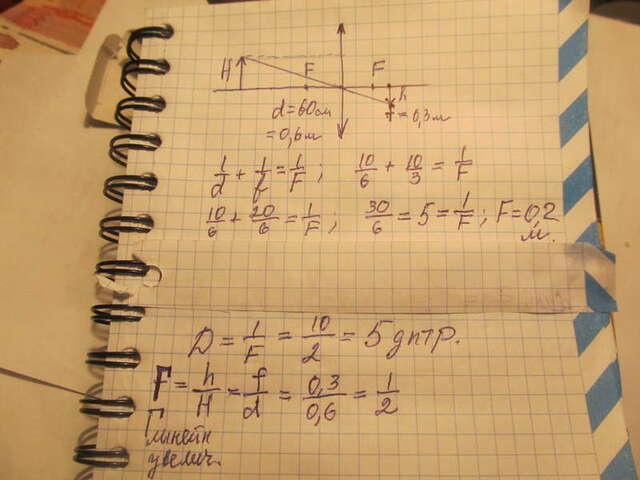 H F F h
d=60см f=0,3м
=0,6м
1/d + 1/f = 1/F ; 10/6 + 10/3 = 1/F
10/6 + 20/6 = 1/F ; 30/6 = 5 = 1/F ; F=0,2 м.
D = 1/F = 10/2 = 5 дптр.
Г = h/H = f/d = 0,3/0,6 = 1/2
Г
линейн
увелич.